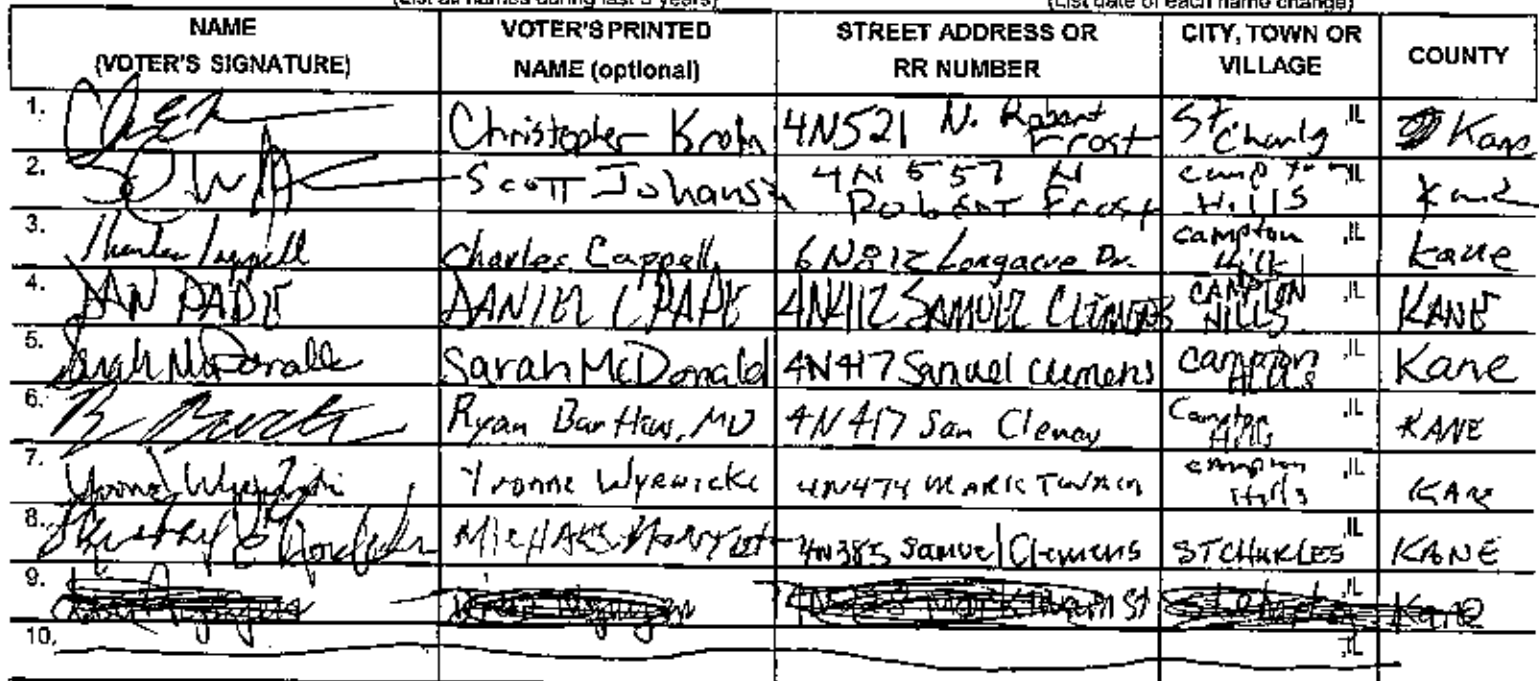 (List all names during last 3 years) (List date of each name change)
NAME (VOTER'S SIGNATURE) VOTER'S PRINTED NAME (optional) STREET ADDRESS OR RR NUMBER CITY, TOWN OR VILLAGE COUNTY
1. Christopher Krohn 4N521 N. Robert Frost St Charles ,IL Kane
2. Scott Johansn 4N557 N Robert Frost Campton Hills ,IL Kane
3. Charles Cappell Charles Cappell 6N812 Longacre Dr. Campton Hills ,IL Kane
4. DAN PAPE DANIEL C PAPE 4N412 SAMUEL CLEMENS CAMPTON HILLS ,IL KANE
5. Sarah McDonald Sarah McDonald 4N417 Samuel Clemens Campton Hills ,IL Kane
6. Ryan , MD 4N417 Sam Clemens Campton Hills ,IL KANE
7. Yvonne Yvonne 4N474 MARK TWAIN Campton Hills ,IL KANE
8. 4N385 Samuel Clemens ST CHARLES ,IL KANE
9. St ,IL Kane
10. ,IL